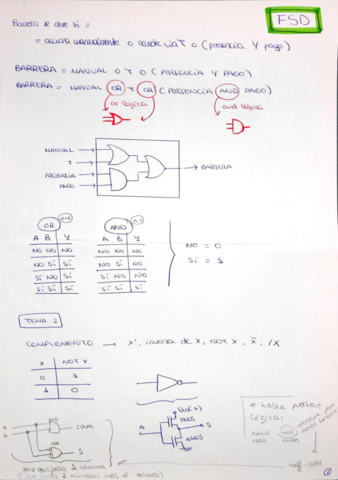 FSD
Barrera se abre si =
= acciona manualmente o accede via T o (presencia Y pago)
BARRERA = MANUAL O T O (PRESENCIA Y PAGO)
BARRERA = MANUAL OR T OR (PRESENCIA AND PAGO)
or lógica
and lógica
MANUAL
T
PRESENCIA
PAGO
BARRERA
OR
A B Y
NO NO NO
NO SÍ SÍ
SÍ NO SÍ
SÍ SÍ SÍ
AND
A B Y
NO NO NO
NO SÍ NO
SÍ NO NO
SÍ SÍ SÍ
NO = 0
SÍ = 1
TEMA 2
COMPLEMENTO → x', inversa de x, NOT x, x̄, /x
X NOT X
0 1
1 0
A
S
PMOS
NMOS
S
lógica:
half-adder